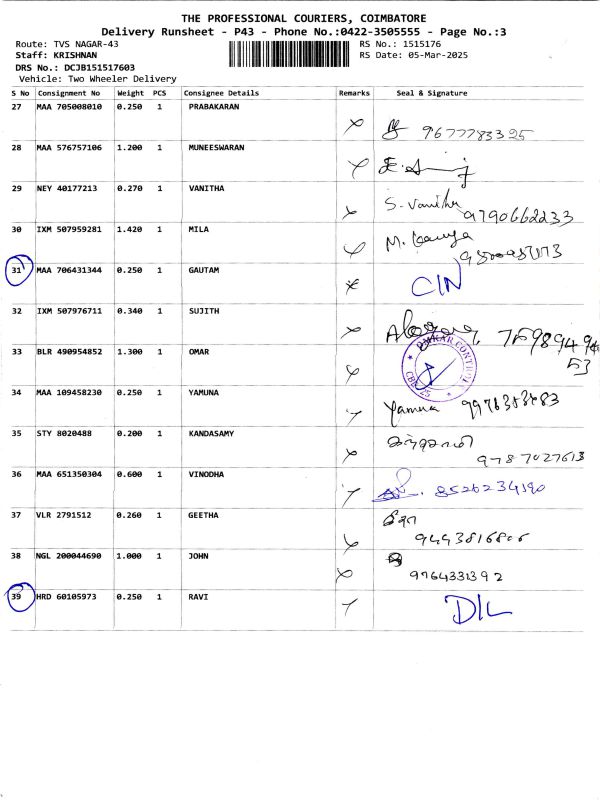 THE PROFESSIONAL COURIERS, COIMBATORE
Delivery Runsheet - P43 - Phone No.:0422-3505555 - Page No.:3
Route: TVS NAGAR-43 RS No.: 1515176
Staff: KRISHNAN RS Date: 05-Mar-2025
DRS No.: DCJB151517603
Vehicle: Two Wheeler Delivery
S No Consignment No Weight PCS Consignee Details Remarks Seal & Signature
27 MAA 705008010 0.250 1 PRABAKARAN
9677783325
28 MAA 576757106 1.200 1 MUNEESWARAN
29 NEY 40177213 0.270 1 VANITHA S. Vanitha
9790662233
30 IXM 507959281 1.420 1 MILA
31 MAA 706431344 0.250 1 GAUTAM CIN
32 IXM 507976711 0.340 1 SUJITH
33 BLR 490954852 1.300 1 OMAR
34 MAA 109458230 0.250 1 YAMUNA
Yamuna
35 STY 8020488 0.200 1 KANDASAMY கந்தசாமி
9787027613
36 MAA 651350304 0.600 1 VINODHA
8526234190
37 VLR 2791512 0.260 1 GEETHA கீதா
38 NGL 200044690 1.000 1 JOHN
9764331392
39 HRD 60105973 0.250 1 RAVI DIL